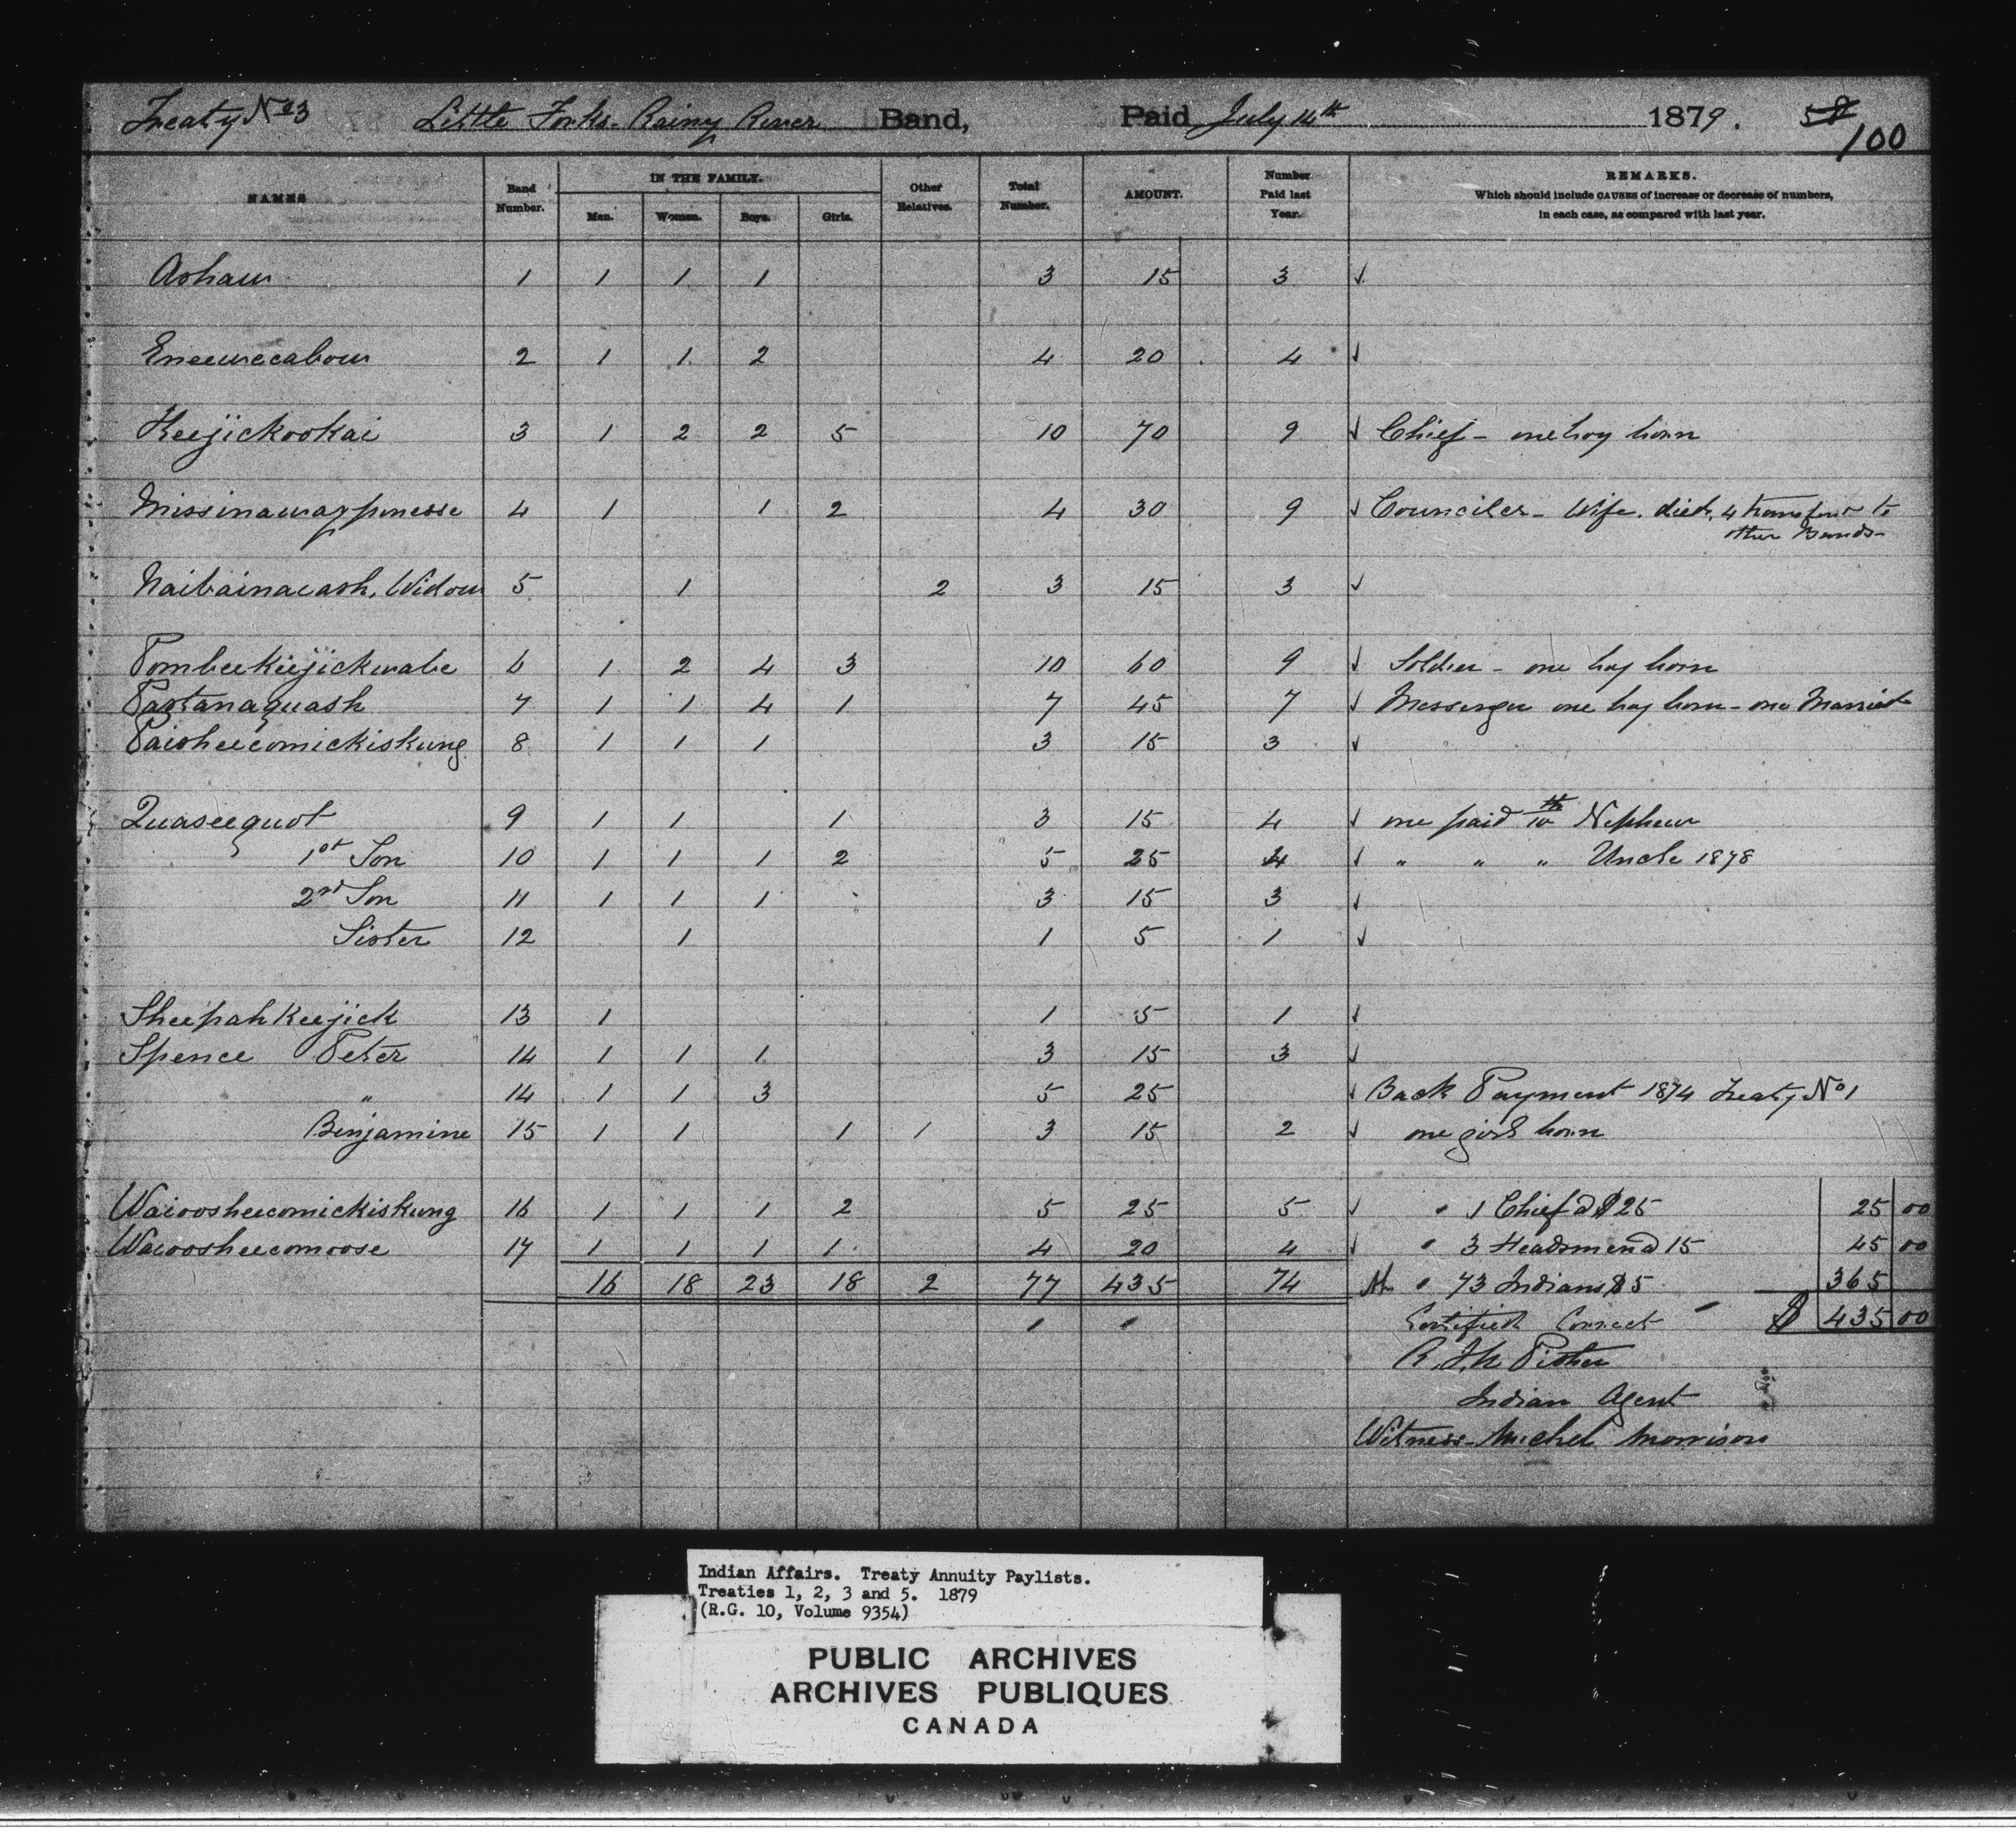 Treaty No 3 Little Forks. Rainy River Band, Paid July 14th 1879. 58
100
NAMES Band Number. IN THE FAMILY. Men. Women. Boys. Girls. Other Relatives. Total Number. AMOUNT. Number Paid last Year. REMARKS.
Which should include CAUSES of increase or decrease of numbers,
in each case, as compared with last year.
Ashaw 1 1 1 1 3 15 3 ✓
Eneewecabow 2 1 1 2 4 20 4 ✓
Keejickookai 3 1 2 2 5 10 70 9 ✓ Chief - one boy born
Missinawaypinesse 4 1 1 2 4 30 9 ✓ Counciler - Wife. died, 4 transferr to
other Bands -
Naibainacash, Widow 5 1 2 3 15 3 ✓
Pombeekeejickwabe 6 1 2 4 3 10 60 9 ✓ Soldier - one boy born
Pastanaquash 7 1 1 4 1 7 45 7 ✓ Messenger one boy born - one Married
Paisheecomickiskung 8 1 1 1 3 15 3 ✓
Quaseequot 9 1 1 1 3 15 4 ✓ one paid to Nephew
1st Son 10 1 1 1 2 5 25 4 ✓ " " " Uncle 1878
2nd Son 11 1 1 1 3 15 3 ✓
Sister 12 1 1 5 1 ✓
Sheepah Keejick 13 1 1 5 1 ✓
Spence Peter 14 1 1 1 3 15 3 ✓
" 14 1 1 3 5 25 ✓ Back Payment 1874 Treaty No 1
Benjamine 15 1 1 1 / 3 15 2 ✓ one girl born
Waiooosheecomickiskung 16 1 1 1 2 5 25 5 ✓ " 1 Chief @ $25 25 00
Waioosheecomoose 17 1 1 1 1 4 20 4 ✓ " 3 Headsmen @ 15 45 00
16 18 23 18 2 77 435 74 " 73 Indians $5 365
Certified Correct $ 435 00
R. J. N. Pither
Indian Agent
Witness - Michel Morrison
Indian Affairs. Treaty Annuity Paylists.
Treaties 1, 2, 3 and 5. 1879
(R.G. 10, Volume 9354)
PUBLIC ARCHIVES
ARCHIVES PUBLIQUES
CANADA